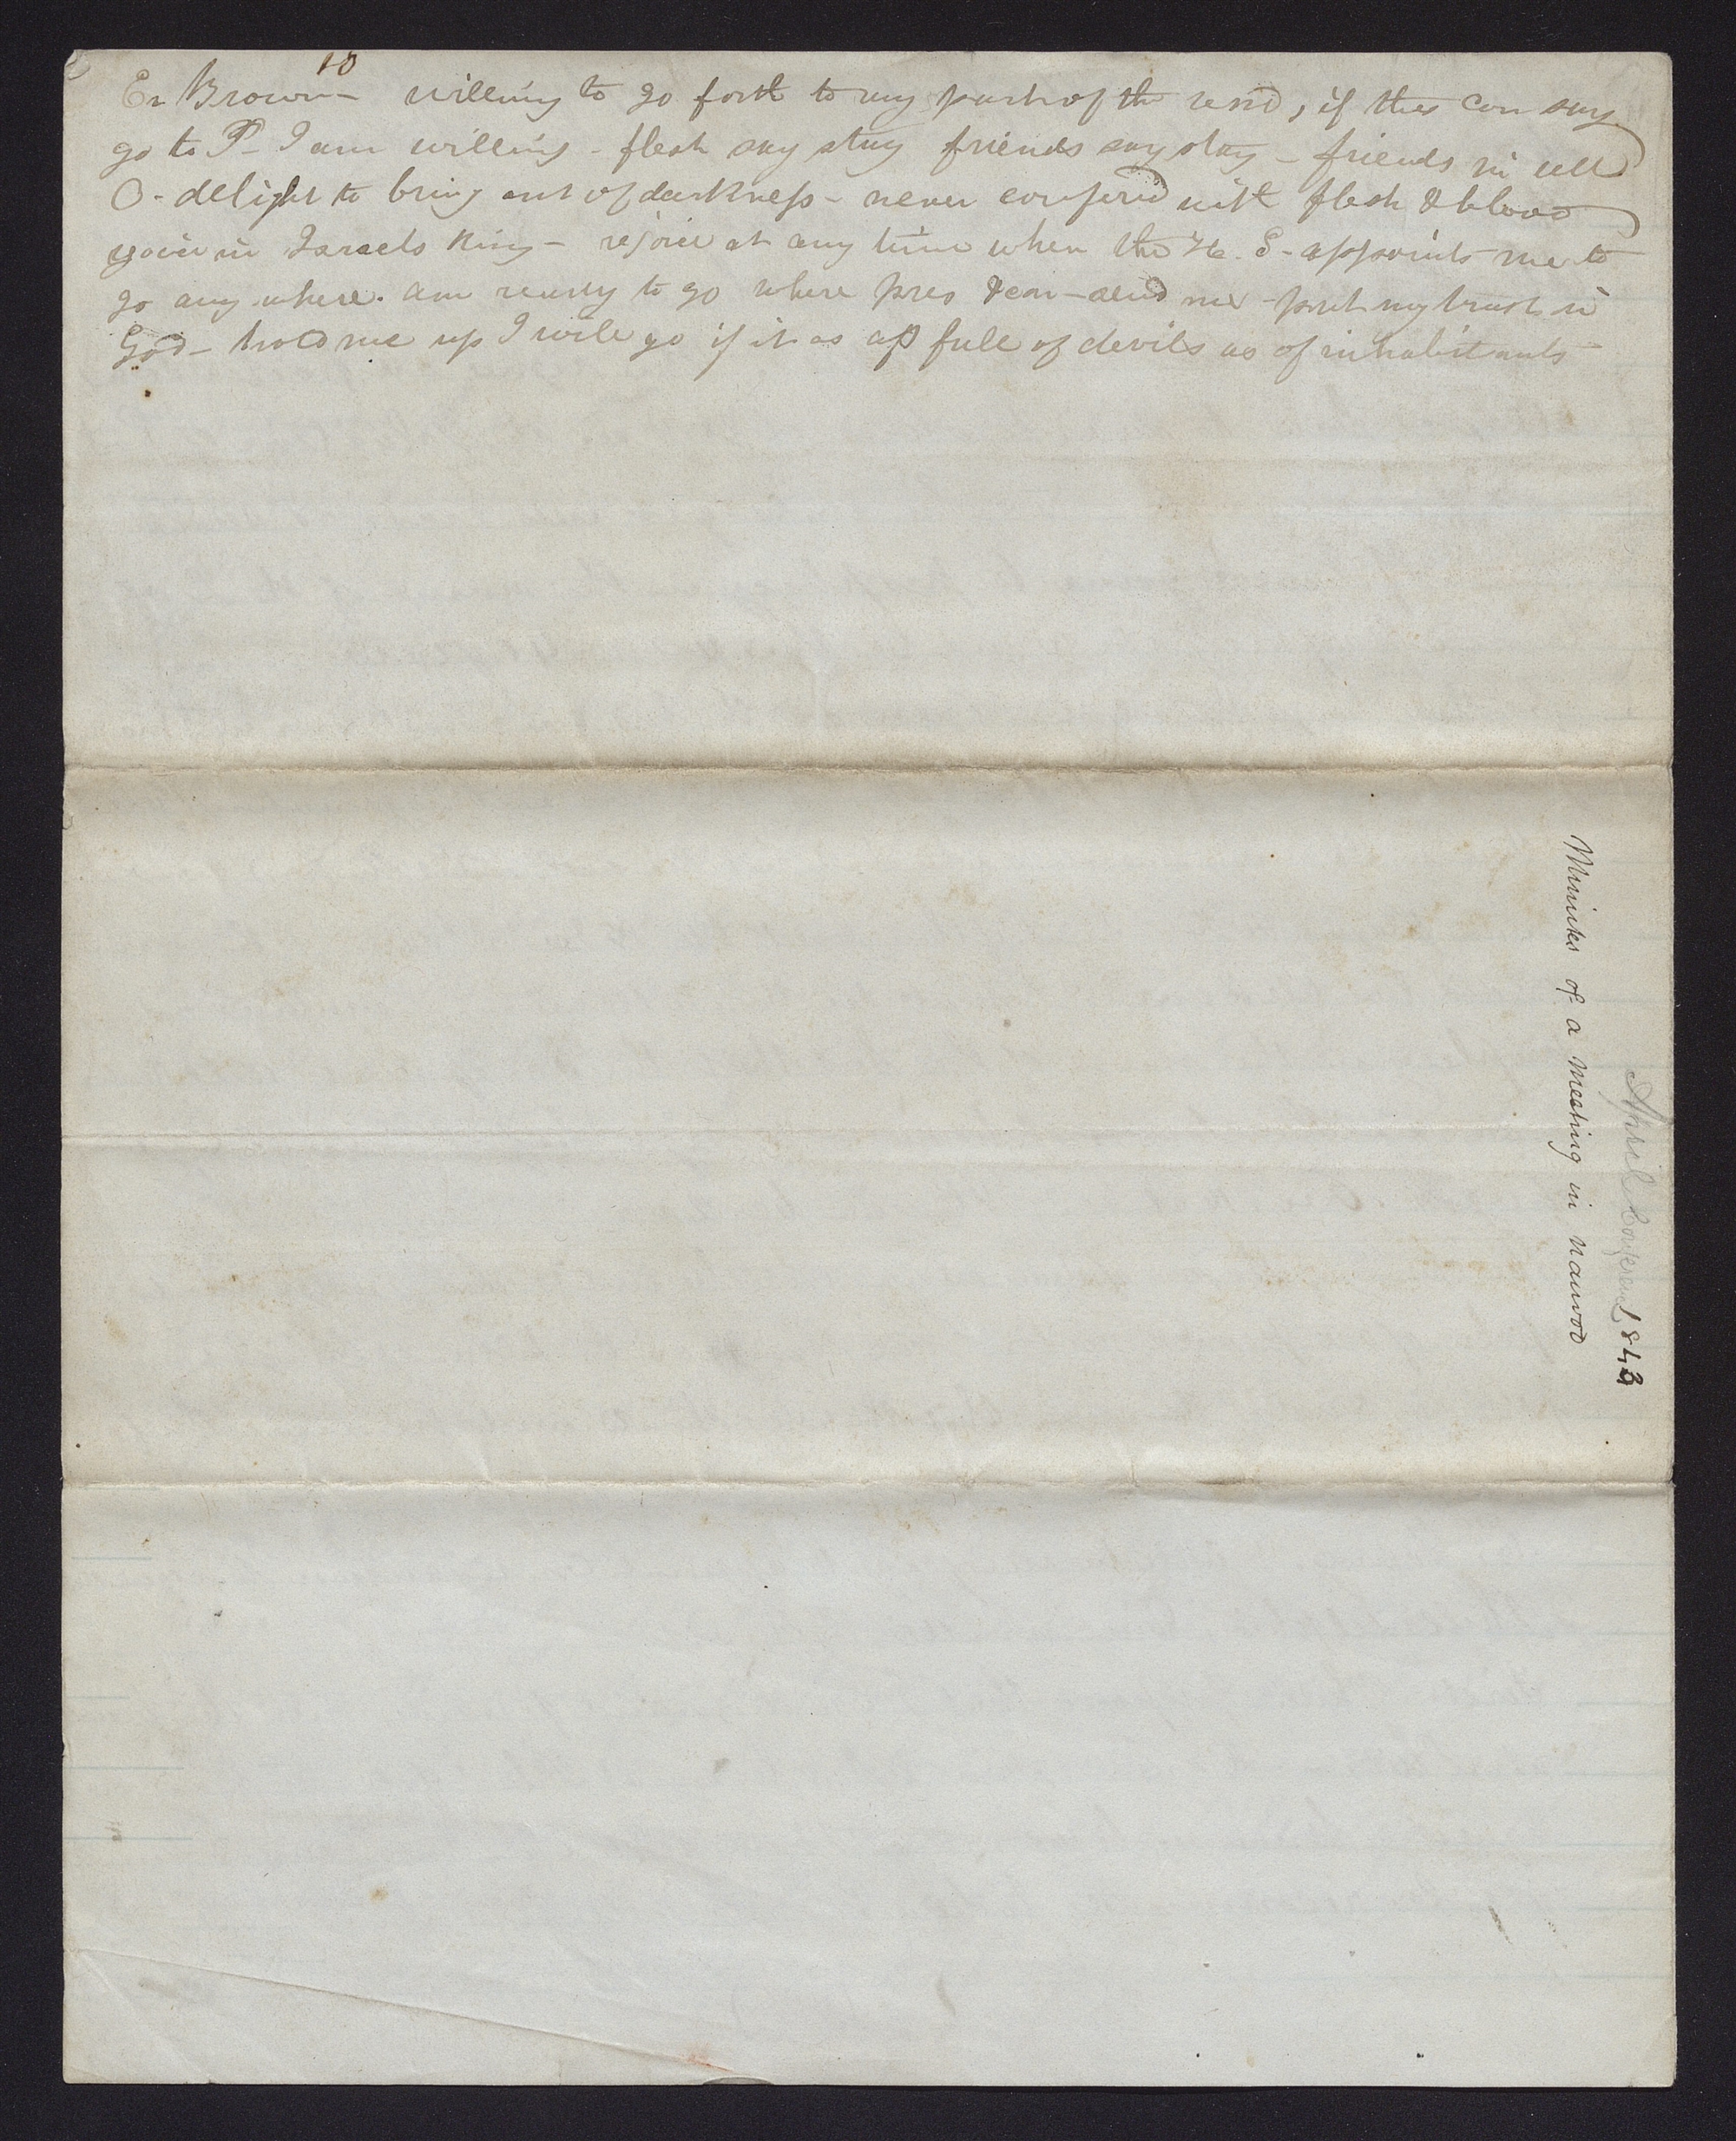 10
Er Brown – willing to go forth to any part of the vend, if they can say
go to P – I am willing – flesh say stay friends say stay – friends in all
O – delight to bring out of darkness – never confered with flesh & blood
in Israels King – rejoice at any time when the H. S – appoints me to
go any where. am ready to go where pres & con – send me – put my trust in
God – hold me up I will go if it is as full of devils as of inhabitants –
April Conference 1843
Minutes of a Meeting in Nauvoo